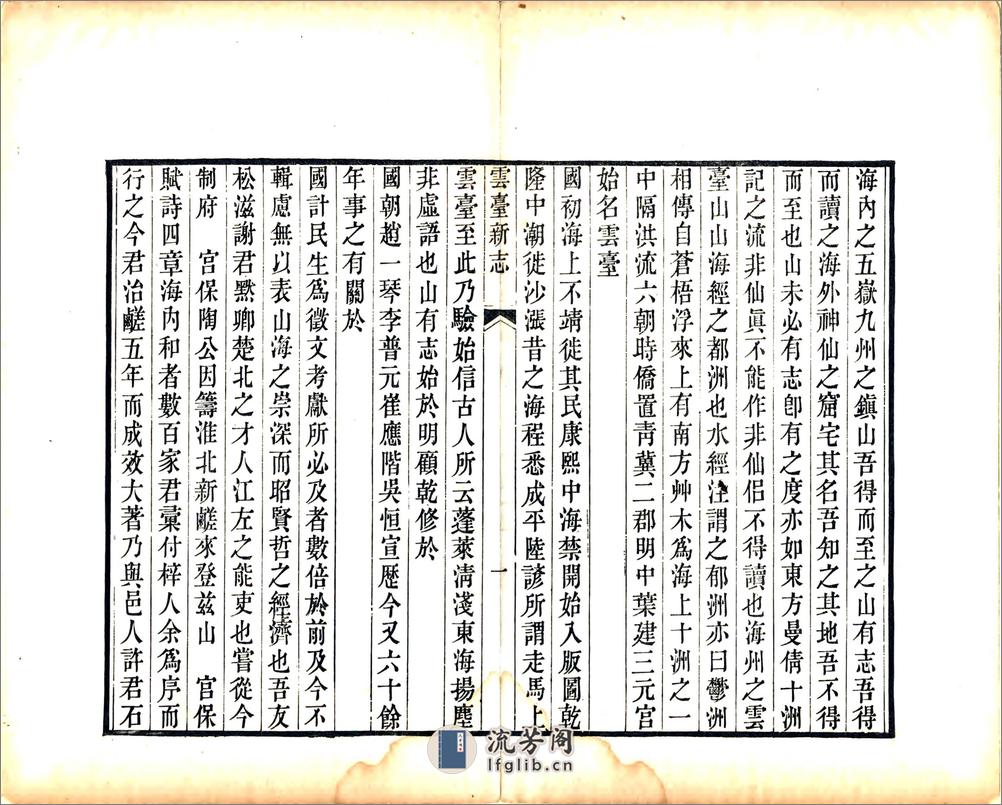 海內之五嶽九州之鎭山吾得而至之山有志吾得
而讀之海外神仙之窟宅其名吾知之其地吾不得
而至也山未必有志卽有之度亦如東方曼倩十洲
記之流非仙眞不能作非仙侶不得讀也海州之雲
臺山山海經之都洲也水經注謂之郁洲亦曰鬱洲
相傳自蒼梧浮來上有南方艸木爲海上十洲之一
中隔洪流六朝時僑置靑冀二郡明中葉建三元宮
始名雲臺
國初海上不靖徙其民康熙中海禁開始入版圖乾
隆中潮徙沙漲昔之海程悉成平陸諺所謂走馬上
雲臺新志
一
雲臺至此乃驗始信古人所云蓬萊淸淺東海揚塵
非虛語也山有志始於明顧乾修於
國朝趙一琴李普元崔應階吳恒宣歷今又六十餘
年事之有關於
國計民生爲徵文考獻所必及者數倍於前及今不
輯慮無以表山海之崇深而昭賢哲之經濟也吾友
松滋謝君默卿楚北之才人江左之能吏也嘗從今
制府 宮保陶公因籌淮北新鹺來登兹山 宮保
賦詩四章海內和者數百家君彙付梓人余爲序而
行之今君治鹺五年而成效大著乃與邑人許君石
流芳阁
lfglib.cn